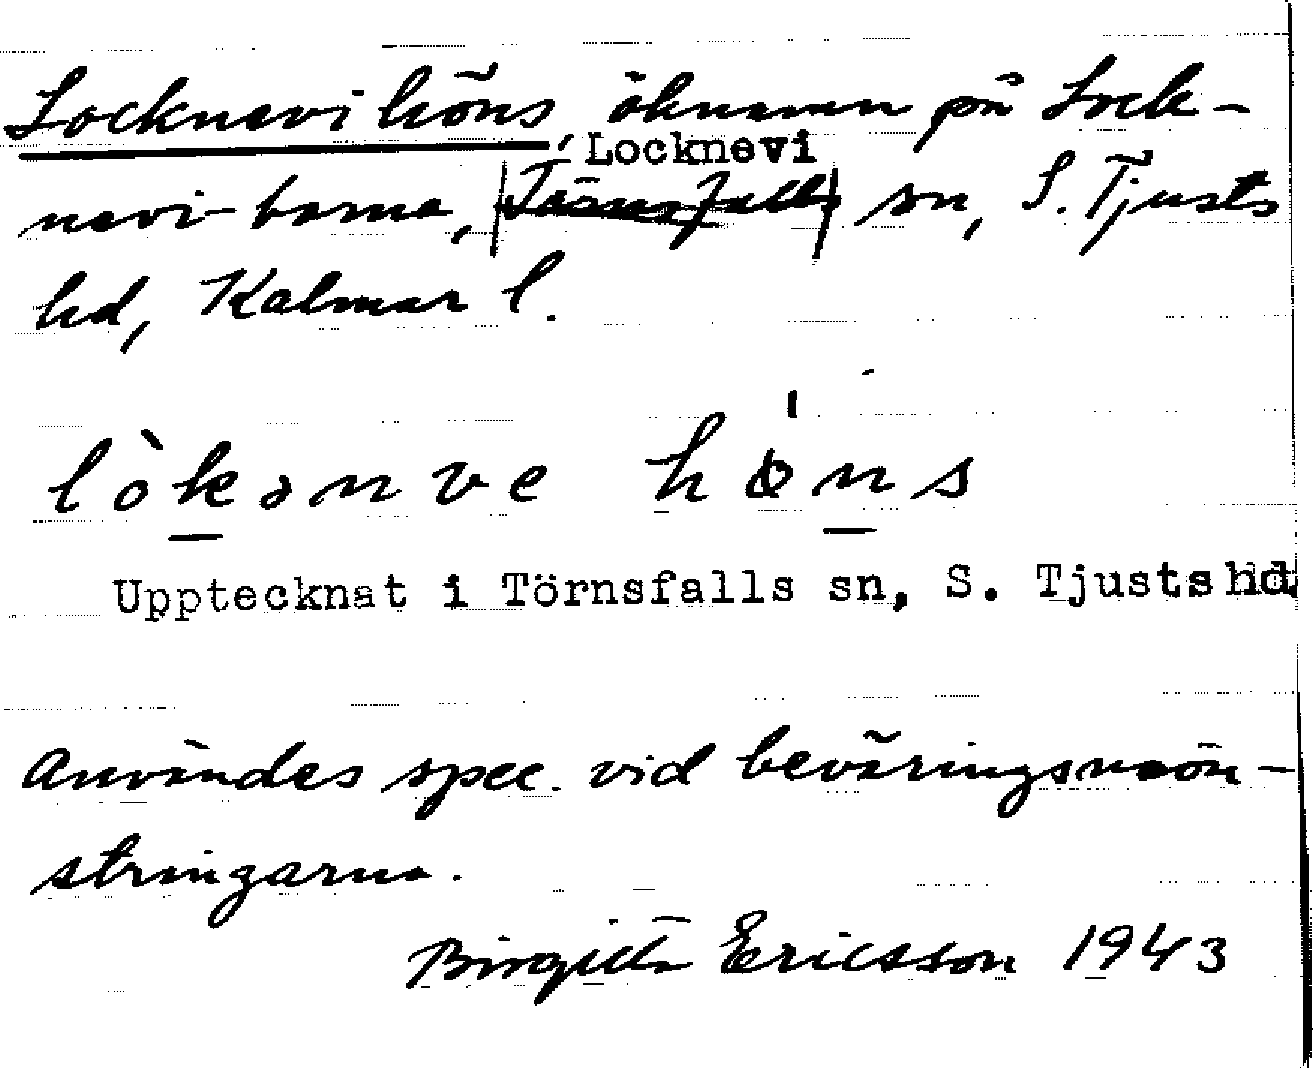 Locknevi höns, öknamn på Lock-
Locknevi
nevi-borna, Törnsfalls sn, S. Tjusts
hd, Kalmar l.
lòkənve hö́ns
Upptecknat i Törnsfalls sn, S. Tjusts hd.
Användes spec. vid beväringsmön-
stringarna.
Birgitta Ericsson 1943